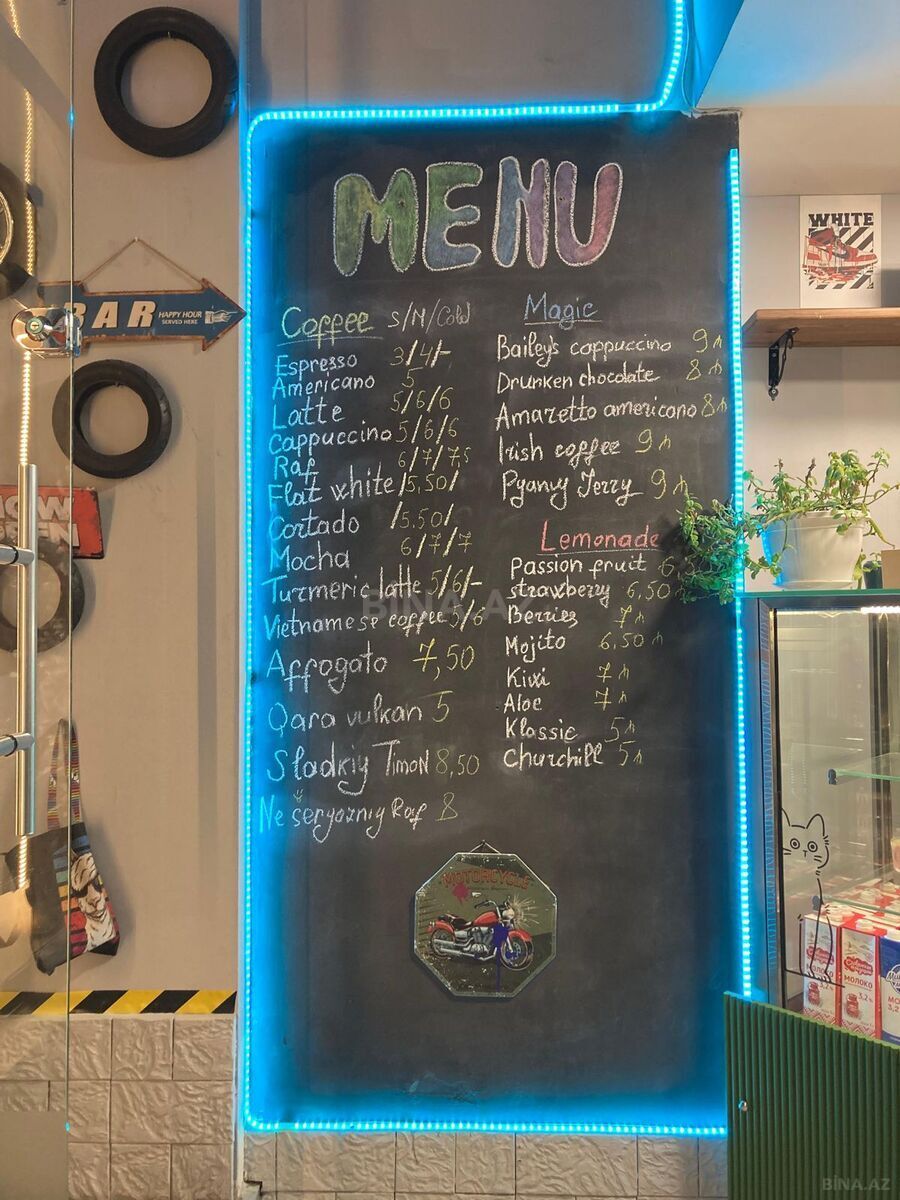 MENU
Coffee S/M/Cold
Espresso 3/4/-
Americano 5
Latte 5/6/6
Cappuccino 5/6/6
Raf 6/7/7,5
Flat white /5,50/
Cortado /5,50/
Mocha 6/7/7
Turmeric latte 5/6/-
Vietnamese coffee 5/6
Affogato 7,50
Qara vulkan 5
Sladkiy Timon 8,50
Ne šeryoznıy Raf 8
Magic
Bailey's cappuccino 9₼
Drunken chocolate 8₼
Amaretto americano 8₼
Irish coffee 9₼
Pyanıy Jerry 9₼
Lemonade
Passion fruit 6
strawberry 6,50₼
Berries 7₼
Mojito 6,50₼
Kiwi 7₼
Aloe 7₼
Klassic 5₼
Churchill 5₼
MOTORCYCLE
BAR
HAPPY HOUR
SERVED HERE
WHITE
МОЛОКО
3,2%
МОЛОКО
3,2%
BINA.AZ
BINA.AZ